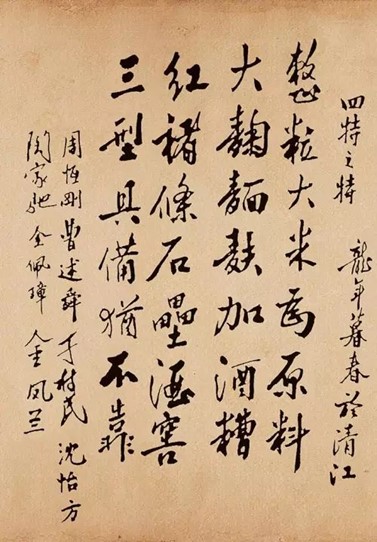 四特之特 龍年暮春於清江
整粒大米为原料
大麯麵麩加酒糟
红褚條石壘酒窖
三型具備猶不靠
周恆刚 曹述舜 于树民 沈怡方
関家驰 金佩璋 金凤兰